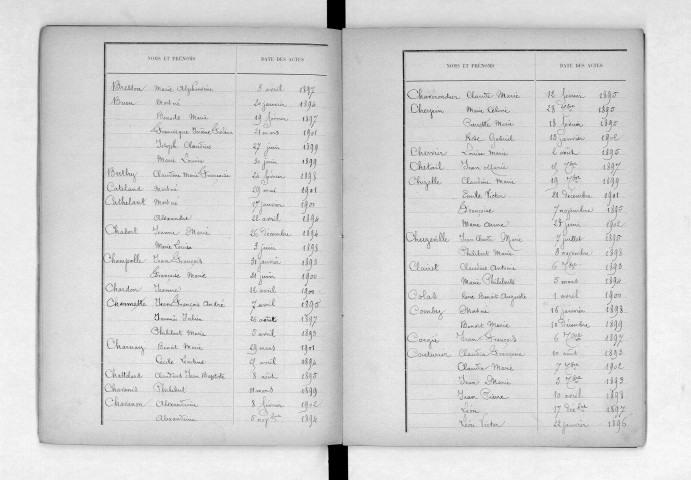 NOMS ET PRÉNOMS DATE DES ACTES
Bresson Marie Alphonsine 3 avril 1897
Brun Mort né 20 janvier 1894
Benoite Marie 19 février 1897
Françoise 21 mars 1901
Joseph Claudius 27 juin 1899
Marie Louise 30 juin 1899
Berthy Claudine Marie Françoise 26 février 1898
Cateland Mort né 29 mai 1901
Cathelant Mort né 17 janvier 1901
Alexandre 22 avril 1894
Chabert Jeanne Marie 26 décembre 1894
Marie Louise 3 juin 1898
Champalle Jean François 31 janvier 1893
Françoise Marie 21 juin 1900
Chardon Jeanne 12 avril 1900
Charmette Jean François André 7 avril 1895
Jeanne Julie 26 août 1897
Philibert Marie 5 avril 1893
Charnay Benoit Marie 29 mars 1901
Cécile 27 avril 1894
Chattelard Claudius Jean Baptiste 8 août 1895
Chavanis Philibert 11 mars 1899
Chavanon Alexandrine 8 février 1902
Alexandrine 5 9bre 1894
NOMS ET PRÉNOMS DATE DES ACTES
Chavrondier Claude Marie 12 février 1895
Cherpin Marie Céline 28 1895
Pierrette Marie 18 février 1895
Gabriel 15 janvier 1902
Chervier Louise Marie 6 août 1895
Chetail Jean Marie 1897
Chizelle Claudine Marie 19 1899
Emile Victor 21 décembre 1901
Françoise 7 novembre 1895
Marie Anne 28 juin 1902
Chuzeville Jean Claude Marie 7 juillet 1895
Philibert Marie 3 novembre 1898
Clairet Claudius Antoine 6 1893
Marie Philiberte 5 mars 1894
Colas René Benoit Auguste 1 avril 1900
Comby Mort né 16 janvier 1898
Benoit Marie 10 décembre 1899
Jean François 6 1897
Couturier Claudia Françoise 10 août 1893
Claudia Marie 7 1902
Jean Marie 5 1893
Jean Pierre 10 avril 1898
Léon 17 décbre 1897
Léon Victor 22 janvier 1896